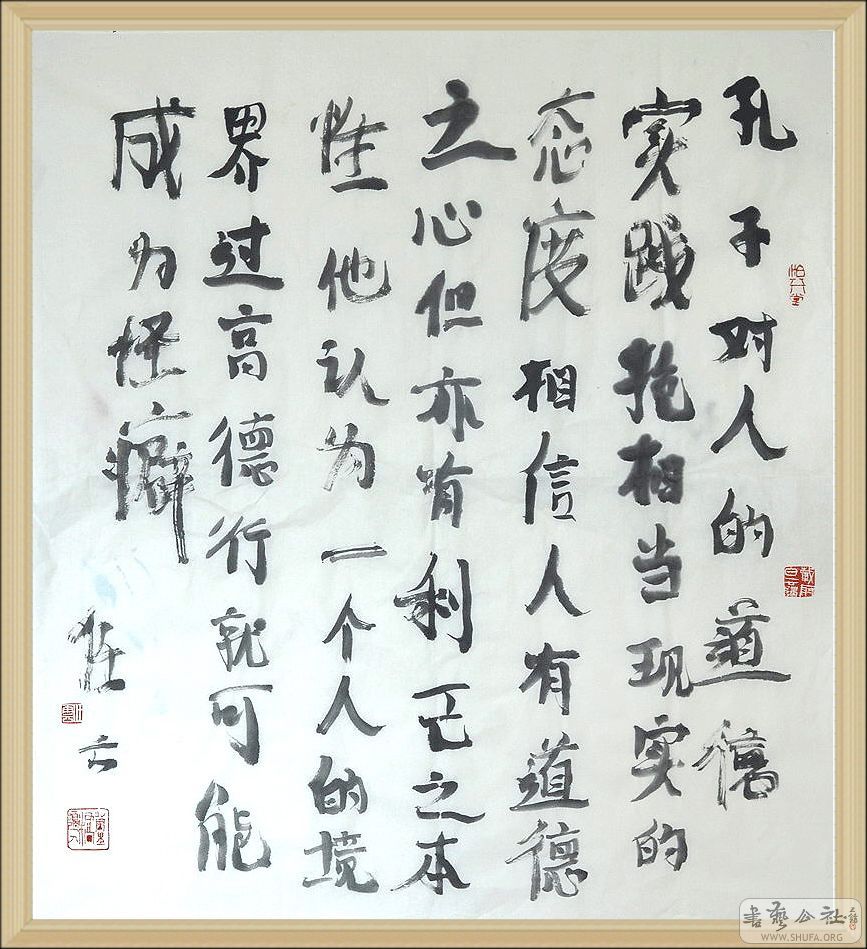 孔子对人的道德
实践抱相当现实的
态度相信人有道德
之心但亦有利己之本
性他认为一个人的境
界过高德行就可能
成为怪癖
書藝公社
WWW.SHUFA.ORG